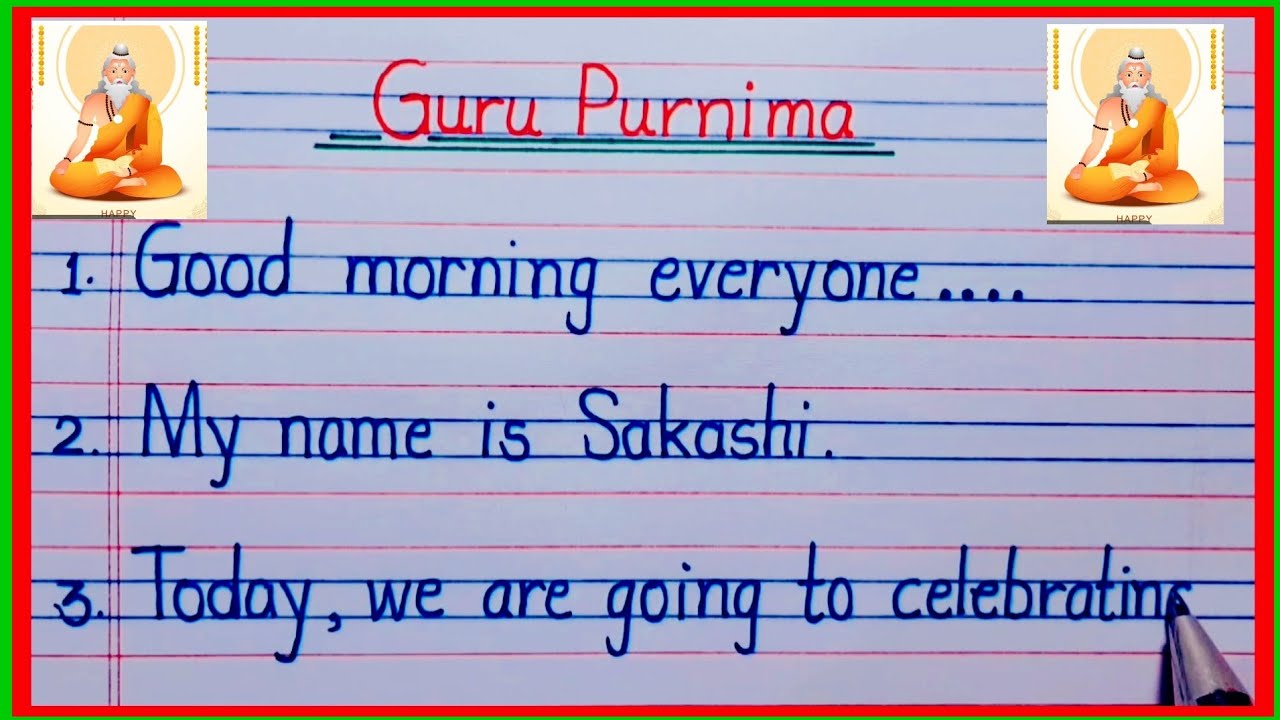 Guru Purnima
HAPPY
HAPPY
1. Good morning everyone....
2. My name is Sakashi.
3. Today, we are going to celebrating